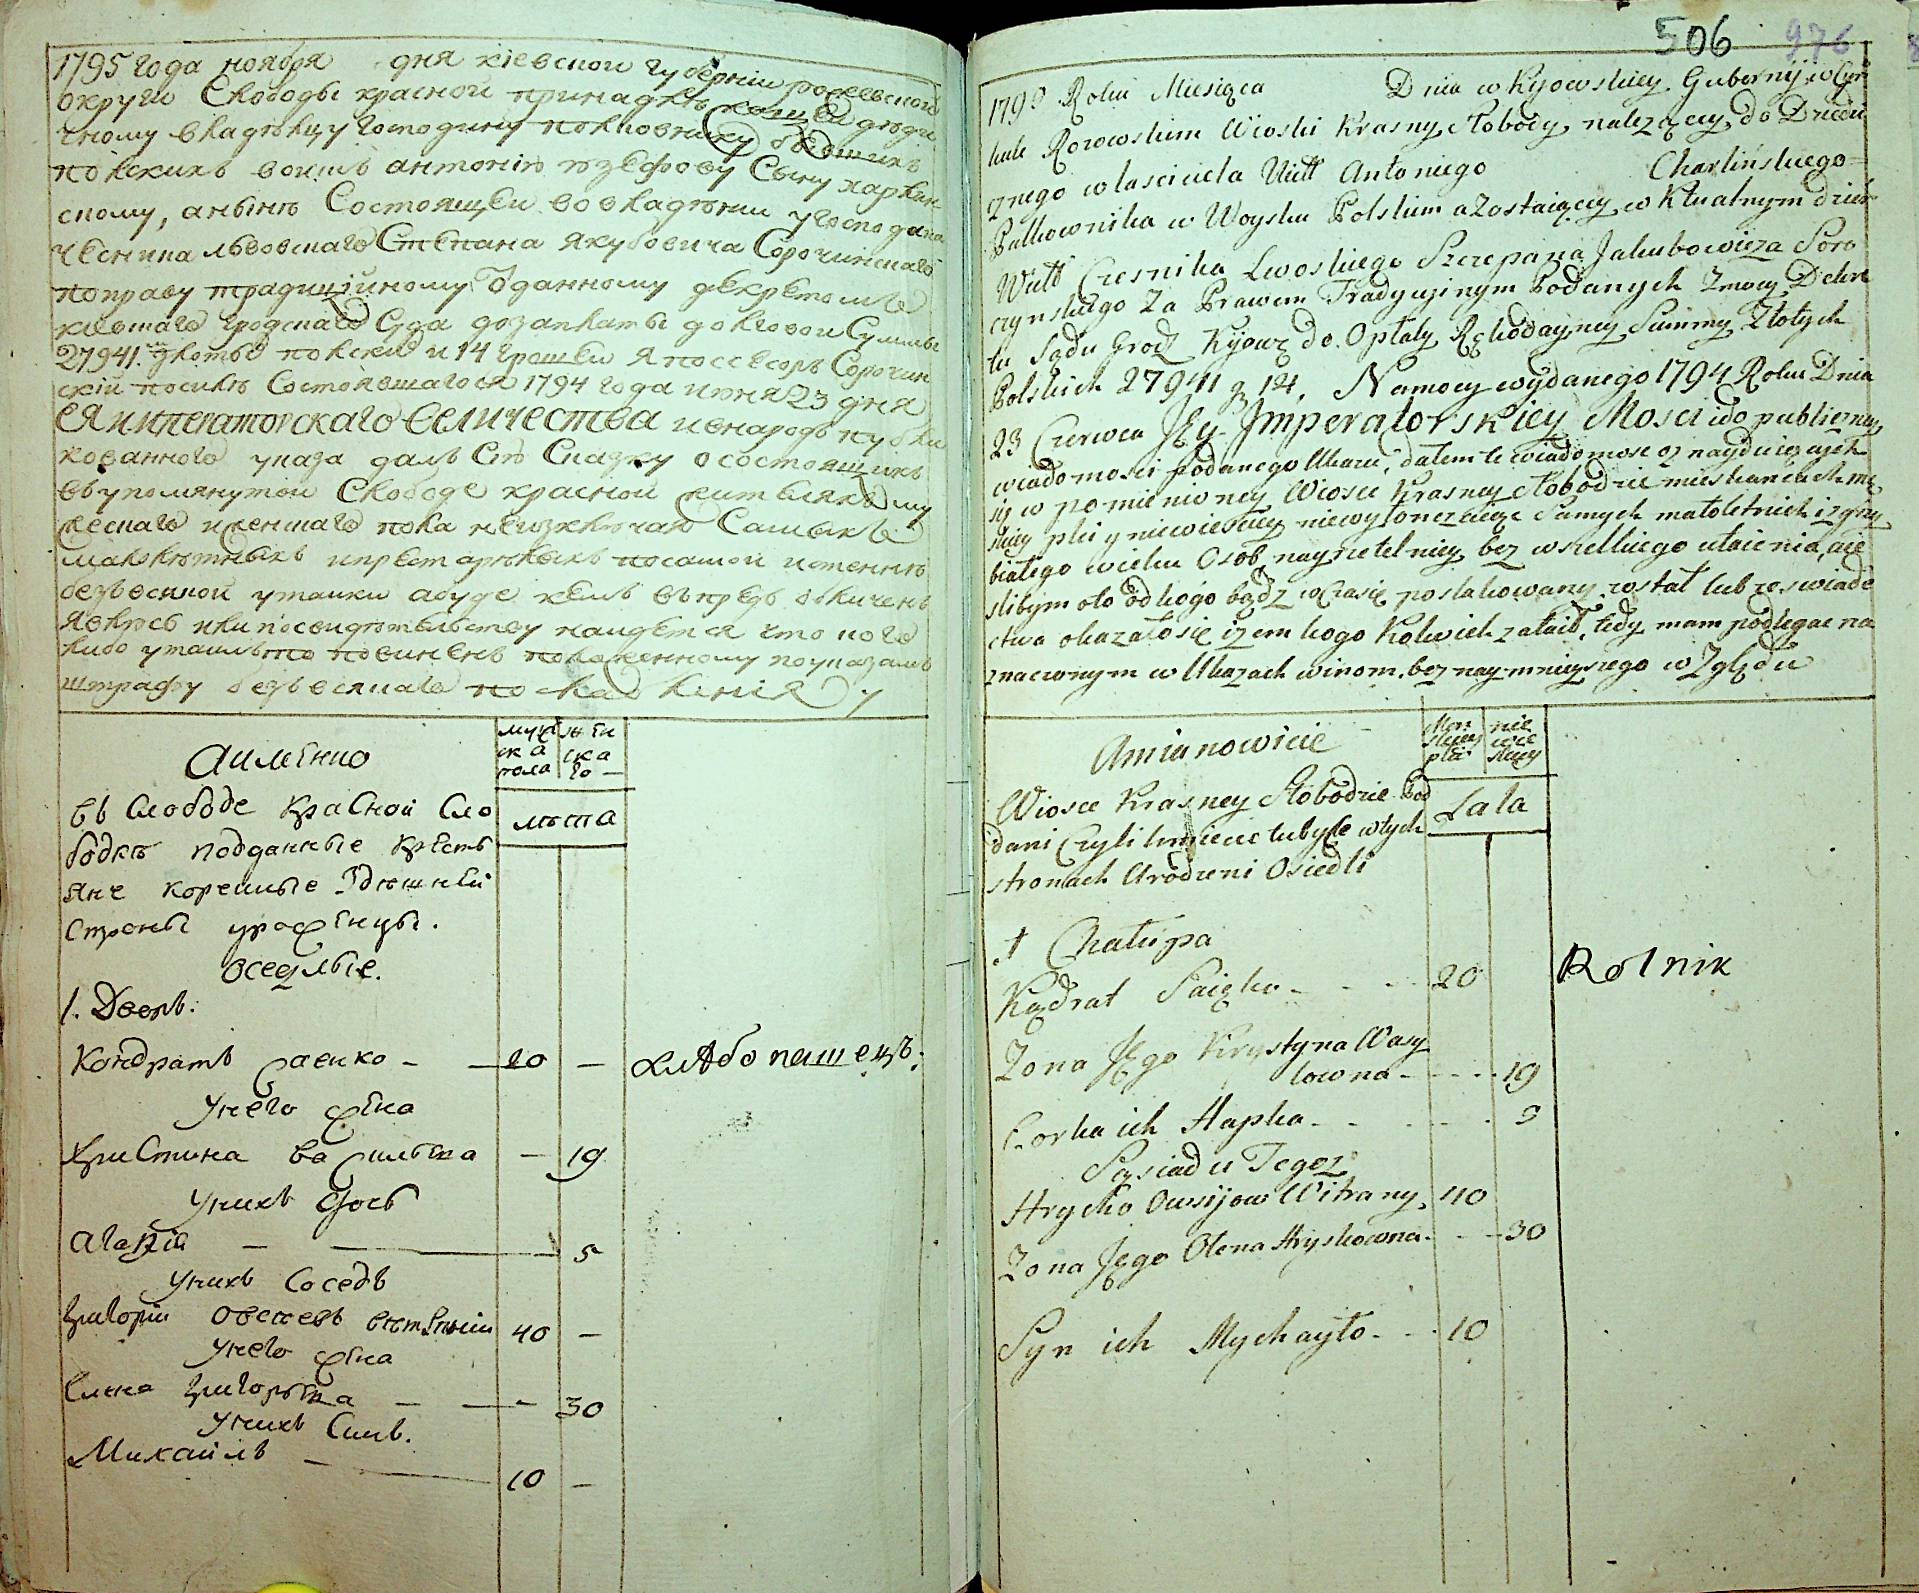 1795 года ноября дня кіевской губерніи росевской
округи Слободы красной принадлежащей дѣди
чному владѣльцу господину полковнику бывшихъ
польскихъ воискъ антонію юзефову Сыну харлин
скому, анынѣ Состоящей во владѣніи угосподина
чесника львовскаго Степана Якубовича Сорочинскаго
поправу традиційному Зданному декретомъ
кіевскаго гродскаго Суда дозаплаты долговой Суммы
27941. злоты польски и 14 грошей Я посесоръ Сорочин
скій посилѣ Состоявшагося 1794 года июня 23 дня
ЕЯ императорскаго величества ивнародъ публи
кованного указа далъ Сію Сказку осостоящихъ
въупомянутой Слободе красной жителяхъ му
жескаго иженскаго пола неизключая Самыхъ
малолѣтныхъ ипрестарѣлыхъ посамой истеннѣ
безъвсякой утайки абуде кемъ въпредь обличенъ
явлюсь или посвидѣтельству найдется что кого
либо утаилъ то повиненъ положенному поуказамъ
штрафу безъвсякаго послабленія
Аименно
муж
ска
пола
жен
ска
го
въ Слободе красной Сло
бодкѣ подданные кресть
яне коренные Здешней
Страны уроженцы.
Оседлые.
лѣта
1. Дворъ:
Кондратъ Раенко – 20 –
хлѣбопашецъ:
Унего жена
Христина васильева – 19
Унихъ дочь
Агафія – – 5
Унихъ Соседъ
Григорій овсеевъ витряный 40 –
Унего жена
Елена Григорьева – – 30
Унихъ Синъ.
Михайлъ – 10 –
506 976
1795 Roku Miesiąca Dnia w Kijowskiey Gubernij w Cyr
kule Rosowskim Wioski Krasny Słobody należącey do Dziedzi
cznego własciciela Uitt Antoniego Charlińskiego
Pułkownika w Woysku Polskim a Zostaiącey w Ktualnym dzier
Witt Czesnika Lwoskiego Szczepana Jakubowicza Soro
czynskiego Za Prawem Tradycyinym Podanych Zmocy Dekre
tu Sądu Grodz Kijowz do Opłaty Rękodayney Summy Złotych
Polskich 27941 g 14. Namocy wydanego 1794 Roku Dnia
23 Czerwca JEy Imperatorskiey Mosci ido publiczney
wiadomosci podanego Ukazu, dałem te wiadomosc oznayduiących
się w pomienioney Wiosce Krasney Słobodzie mieszkancach mę
skiey płci y niewieściey niewyłonczaiąc Samych małoletnich izgrzy
białego wieku Osob, nayrzetelniey bez wszelkiego utaienia, aie
slibym oto odkogo bądz wczasie poszlakowany został lub zeswiade
ctwa okazałosię izem kogo Kolwiek zataił, tedy mam podlegac na
znaczonym w Ukazach winom. bez naymnieyszego wZględu
Amianowicie
Męn
skiey
płci
nie
wie
skiey
Wiosce Krasney Słobodzie Pod
dani Czyli kmiecie tubyłe wtych
stronach Urodzeni Osiedli
Lata
1 Chałupa
Kądrat Raięko - - - 20
Rolnik
Zona Jego Krystyna Wasy
lowna - - - - 19
Corka ich Hapka - - - - 5
Sąsiad u Tegoż
Hryćko Owsijow Witrany 40
Zona Jego Olena Hryskowna - - 30
Syn ich Mychayło - - 10